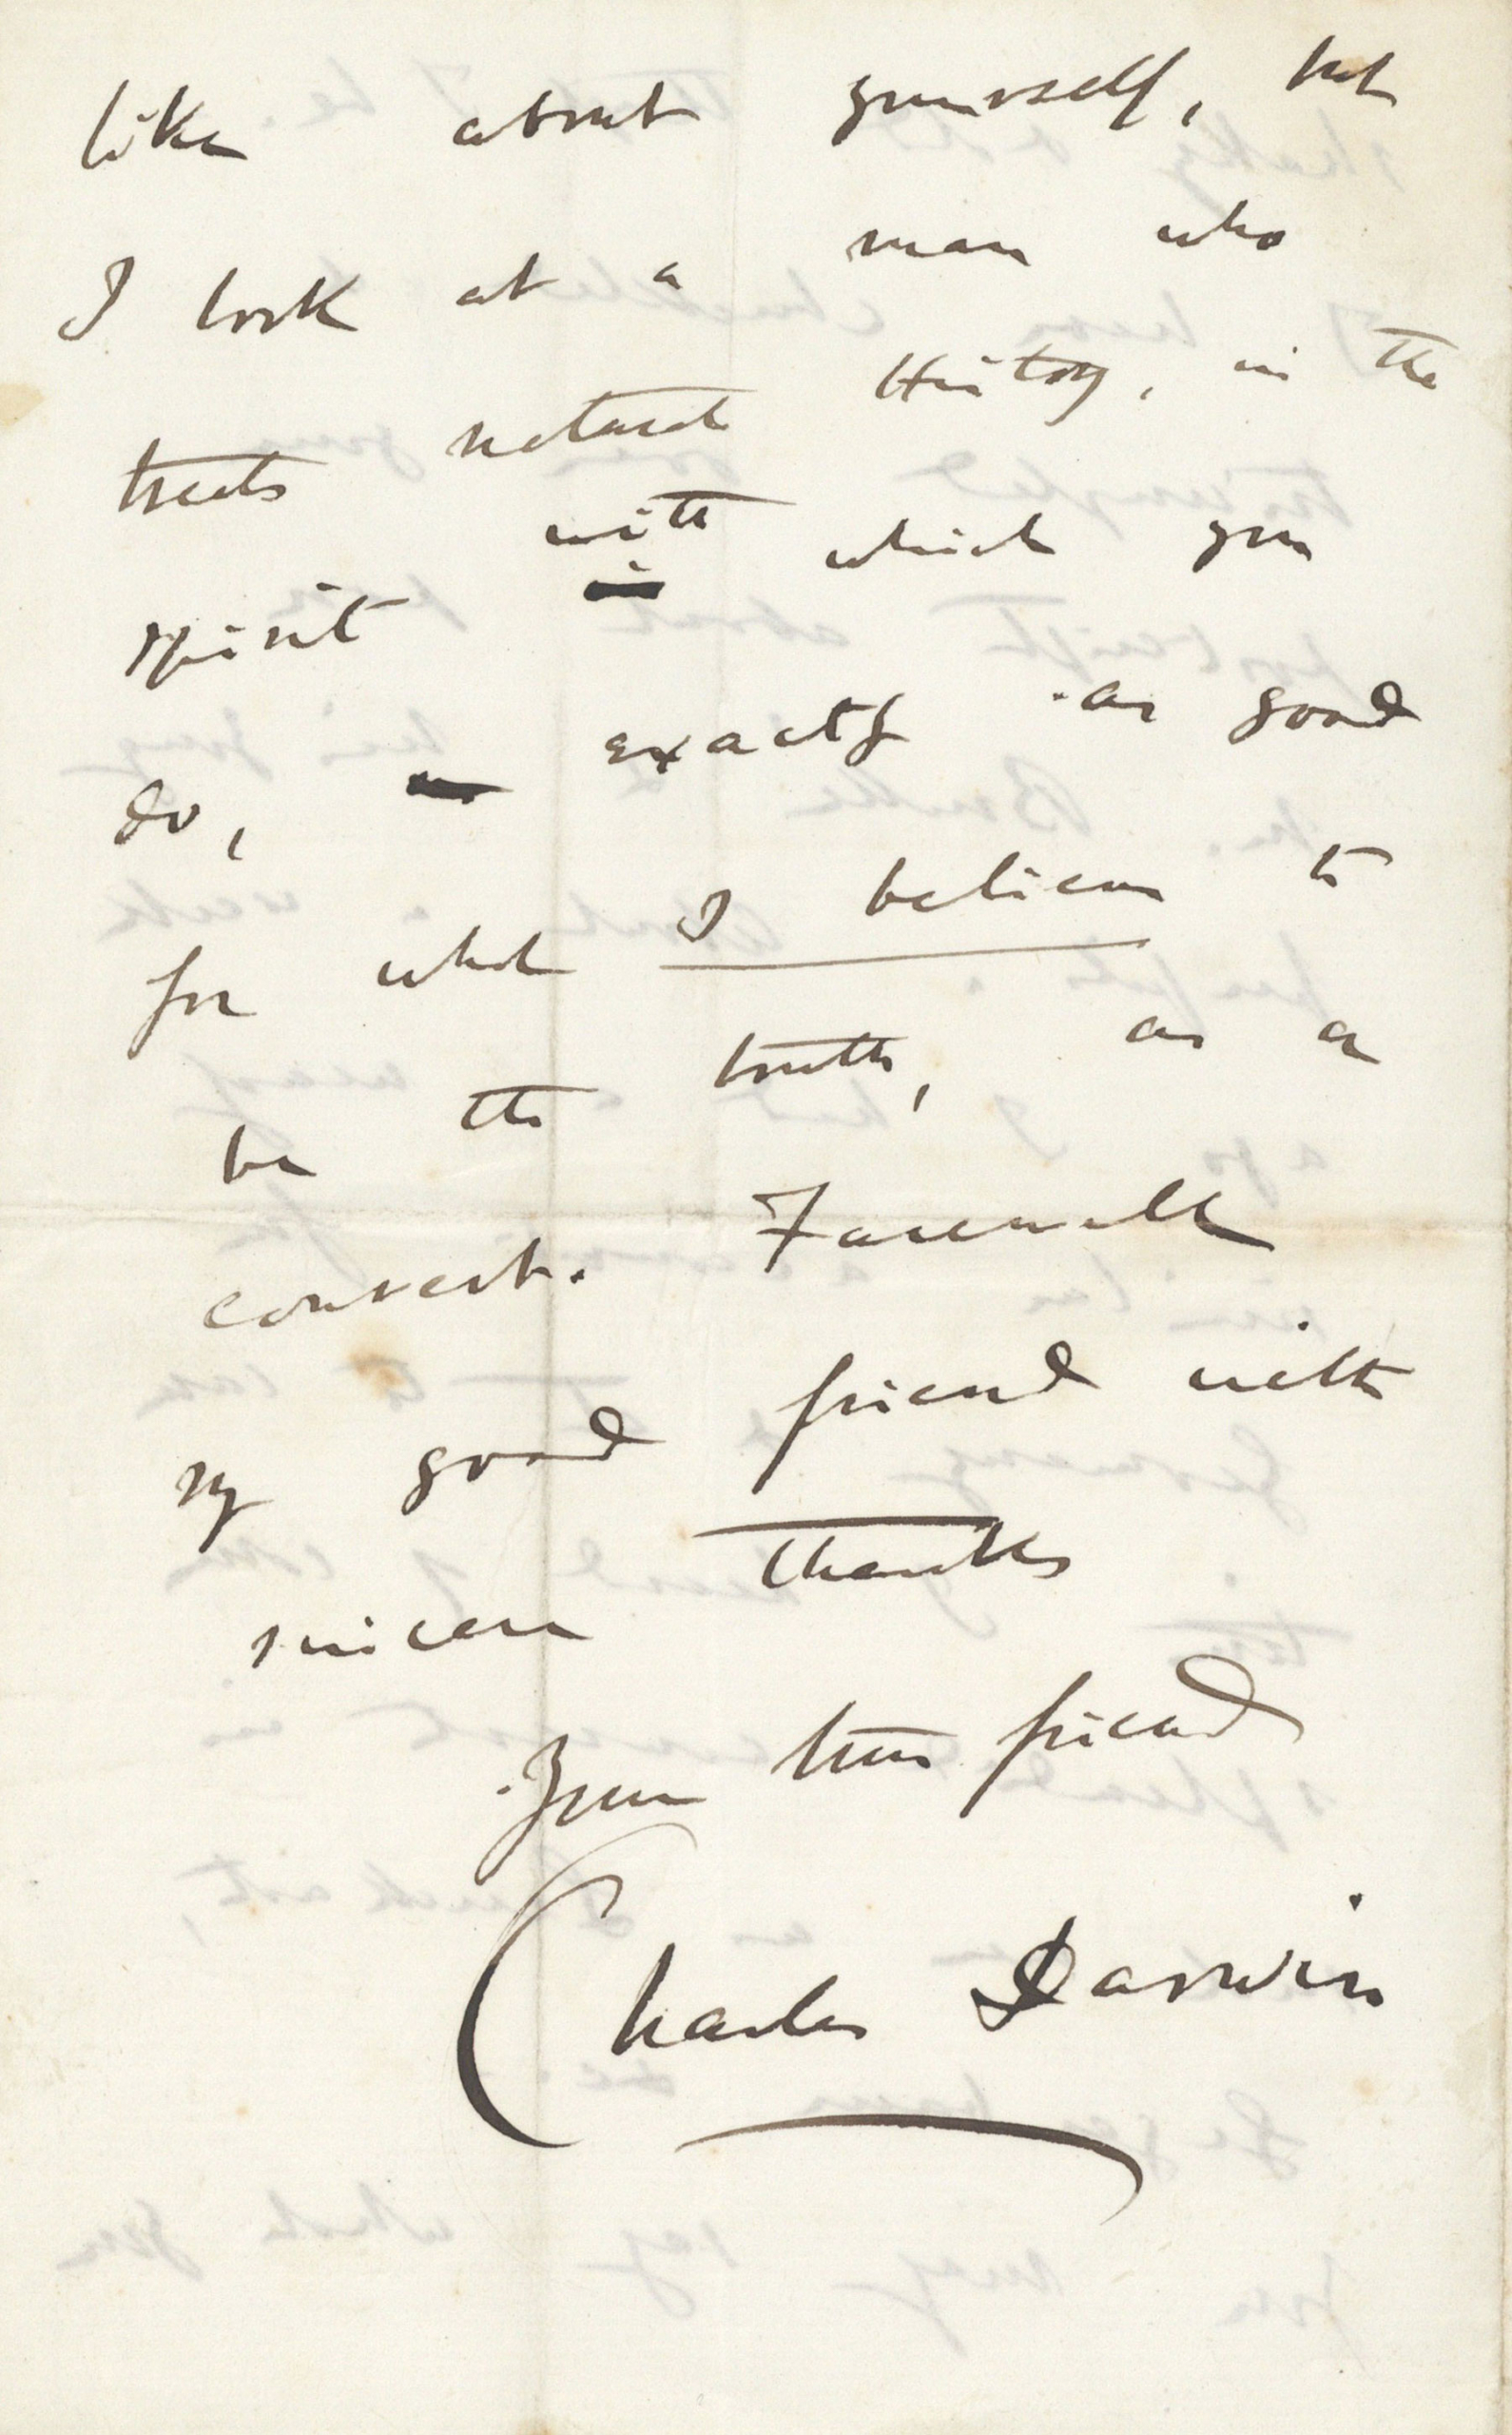 like about yourself, but
I look at a man who
treats natural History, in the
spirit with which you
do, exactly as good
for what I believe to
be the truth, as a
convert. Farewell
my good friend with
sincere thanks
Your true friend
Charles Darwin